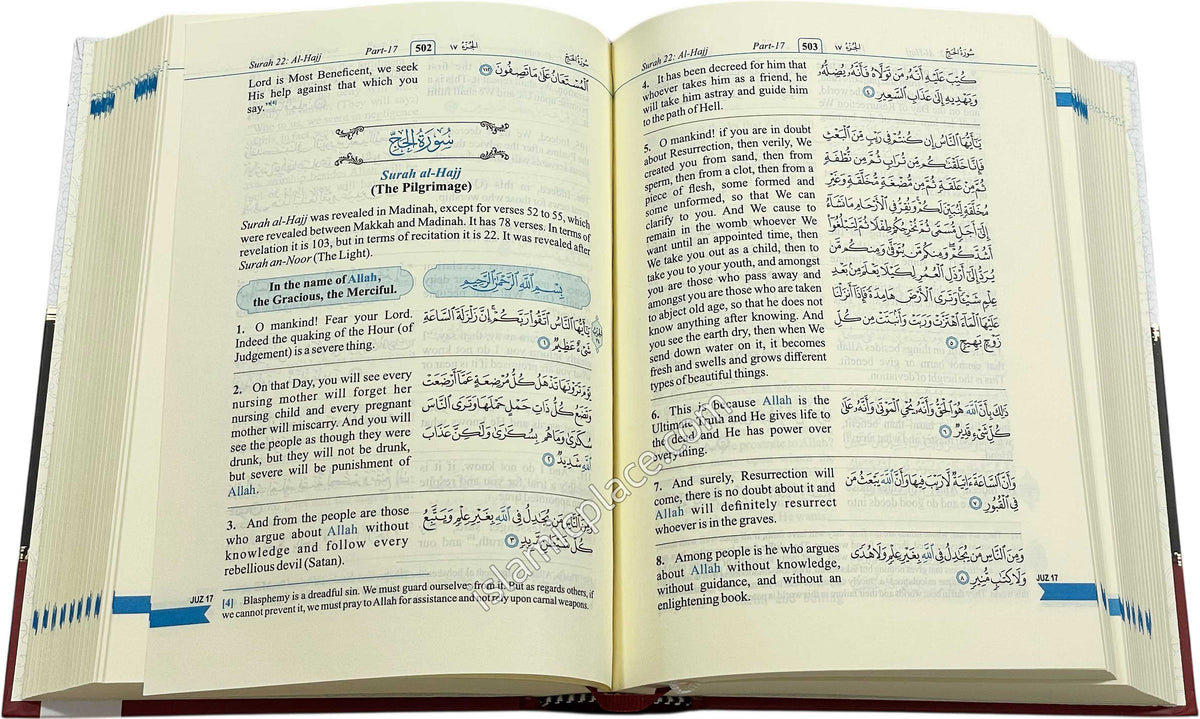 Surah 22: Al-Hajj
Part-17
502
الجزء ١٧
سورة الحج
Lord is Most Beneficent, we seek
His help against that which you
say."[4]
ٱلۡمُسۡتَعَانُ عَلَىٰ مَا تَصِفُونَ ﴿١١٢﴾
سُورَةُ الحَجِّ
Surah al-Hajj
(The Pilgrimage)
Surah al-Hajj was revealed in Madinah, except for verses 52 to 55, which
were revealed between Makkah and Madinah. It has 78 verses. In terms of
revelation it is 103, but in terms of recitation it is 22. It was revealed after
Surah an-Noor (The Light).
In the name of Allah,
the Gracious, the Merciful.
بِسۡمِ ٱللَّهِ ٱلرَّحۡمَٰنِ ٱلرَّحِيمِ
1. O mankind! Fear your Lord.
Indeed the quaking of the Hour (of
Judgement) is a severe thing.
يَٰٓأَيُّهَا ٱلنَّاسُ ٱتَّقُواْ رَبَّكُمۡۚ إِنَّ زَلۡزَلَةَ ٱلسَّاعَةِ
شَيۡءٌ عَظِيمٞ ﴿١﴾
2. On that Day, you will see every
nursing mother will forget her
nursing child and every pregnant
mother will miscarry. And you will
see the people as though they were
drunk, but they will not be drunk,
but severe will be punishment of
Allah.
يَوۡمَ تَرَوۡنَهَا تَذۡهَلُ كُلُّ مُرۡضِعَةٍ عَمَّآ أَرۡضَعَتۡ
وَتَضَعُ كُلُّ ذَاتِ حَمۡلٍ حَمۡلَهَا وَتَرَى ٱلنَّاسَ
سُكَٰرَىٰ وَمَا هُم بِسُكَٰرَىٰ وَلَٰكِنَّ عَذَابَ
ٱللَّهِ شَدِيدٞ ﴿٢﴾
3. And from the people are those
who argue about Allah without
knowledge and follow every
rebellious devil (Satan).
وَمِنَ ٱلنَّاسِ مَن يُجَٰدِلُ فِي ٱللَّهِ بِغَيۡرِ عِلۡمٖ وَيَتَّبِعُ
كُلَّ شَيۡطَٰنٖ مَّرِيدٖ ﴿٣﴾
[4] Blasphemy is a dreadful sin. We must guard ourselves from it. But as regards others, if
we cannot prevent it, we must pray to Allah for assistance and not rely upon carnal weapons.
JUZ 17
Surah 22: Al-Hajj
Part-17
503
الجزء ١٧
سورة الحج
4. It has been decreed for him that
whoever takes him as a friend, he
will take him astray and guide him
to the path of Hell.
كُتِبَ عَلَيۡهِ أَنَّهُۥ مَن تَوَلَّاهُ فَأَنَّهُۥ يُضِلُّهُۥ
وَيَهۡدِيهِ إِلَىٰ عَذَابِ ٱلسَّعِيرِ ﴿٤﴾
5. O mankind! if you are in doubt
about Resurrection, then verily, We
created you from sand, then from
sperm, then from a clot, then from a
piece of flesh, some formed and
some unformed, so that We can
clarify to you. And We cause to
remain in the womb whoever We
want until an appointed time, then
We take you out as a child, then to
take you to your youth, and amongst
you are those who pass away and
amongst you are those who are taken
to abject old age, so that he does not
know anything after knowing. And
you see the earth dry, then when We
send down water on it, it becomes
fresh and swells and grows different
types of beautiful things.
يَٰٓأَيُّهَا ٱلنَّاسُ إِن كُنتُمۡ فِي رَيۡبٖ مِّنَ ٱلۡبَعۡثِ
فَإِنَّا خَلَقۡنَٰكُم مِّن تُرَابٖ ثُمَّ مِن نُّطۡفَةٖ
ثُمَّ مِنۡ عَلَقَةٖ ثُمَّ مِن مُّضۡغَةٖ مُّخَلَّقَةٖ وَغَيۡرِ
مُخَلَّقَةٖ لِّنُبَيِّنَ لَكُمۡۚ وَنُقِرُّ فِي ٱلۡأَرۡحَامِ مَا نَشَآءُ
إِلَىٰٓ أَجَلٖ مُّسَمّٗى ثُمَّ نُخۡرِجُكُمۡ طِفۡلٗا ثُمَّ لِتَبۡلُغُوٓاْ
أَشُدَّكُمۡۖ وَمِنكُم مَّن يُتَوَفَّىٰ وَمِنكُم مَّن
يُرَدُّ إِلَىٰٓ أَرۡذَلِ ٱلۡعُمُرِ لِكَيۡلَا يَعۡلَمَ مِنۢ بَعۡدِ
عِلۡمٖ شَيۡـٔٗاۚ وَتَرَى ٱلۡأَرۡضَ هَامِدَةٗ فَإِذَآ أَنزَلۡنَا
عَلَيۡهَا ٱلۡمَآءَ ٱهۡتَزَّتۡ وَرَبَتۡ وَأَنۢبَتَتۡ مِن كُلِّ
زَوۡجِۭ بَهِيجٖ ﴿٥﴾
6. This is because Allah is the
Ultimate Truth and He gives life to
the dead and He has power over
everything.
ذَٰلِكَ بِأَنَّ ٱللَّهَ هُوَ ٱلۡحَقُّ وَأَنَّهُۥ يُحۡيِ ٱلۡمَوۡتَىٰ وَأَنَّهُۥ عَلَىٰ
كُلِّ شَيۡءٖ قَدِيرٞ ﴿٦﴾
7. And surely, Resurrection will
come, there is no doubt about it and
Allah will definitely resurrect
whoever is in the graves.
وَأَنَّ ٱلسَّاعَةَ ءَاتِيَةٞ لَّا رَيۡبَ فِيهَا وَأَنَّ ٱللَّهَ يَبۡعَثُ مَن
فِي ٱلۡقُبُورِ ﴿٧﴾
8. Among people is he who argues
about Allah without knowledge,
without guidance, and without an
enlightening book.
وَمِنَ ٱلنَّاسِ مَن يُجَٰدِلُ فِي ٱللَّهِ بِغَيۡرِ عِلۡمٖ وَلَا هُدٗى
وَلَا كِتَٰبٖ مُّنِيرٖ ﴿٨﴾
JUZ 17
islamicplace.com